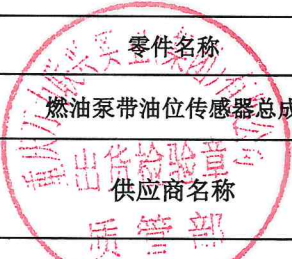 零件名称
燃油泵带油位传感器总成
供应商名称
出货检验章
质管部